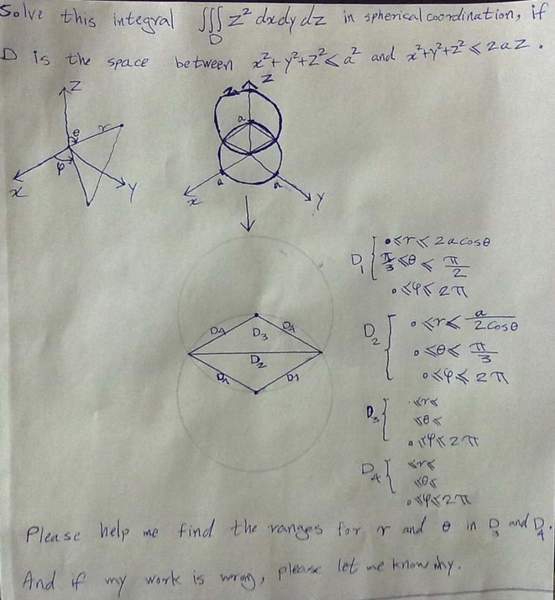 Solve this integral ∭_D z² dxdydz in spherical coordination, if
D is the space between x²+y²+z² ≤ a² and x²+y²+z² ≤ 2az.
z
θ
r
φ
x
y
z
2a
a
a
a
x
y
D₄
D₃
D₄
D₂
D₁
D₁
D₁ { 0≤r≤2acosθ
π/3≤θ≤π/2
0≤φ≤2π
D₂ { 0≤r≤a/2cosθ
0≤θ≤π/3
0≤φ≤2π
D₃ { ≤r≤
≤θ≤
0≤φ≤2π
D₄ { ≤r≤
≤θ≤
0≤φ≤2π
Please help me find the ranges for r and θ in D₃ and D₄.
And if my work is wrong, please let me know why.